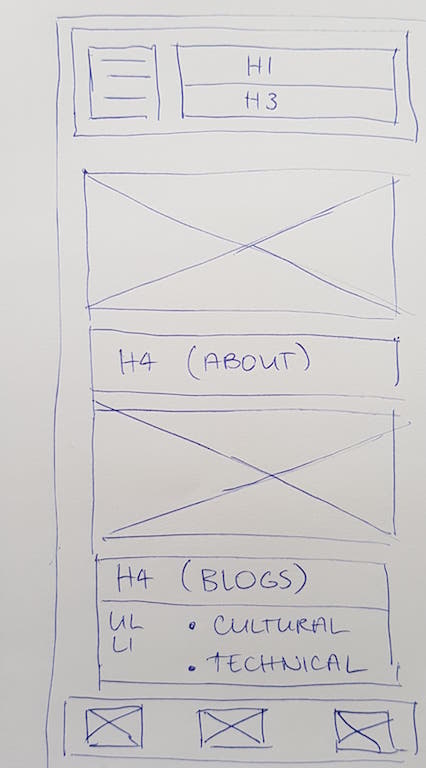 H1
H3
H4 (ABOUT)
H4 (BLOGS)
UL • CULTURAL
LI • TECHNICAL